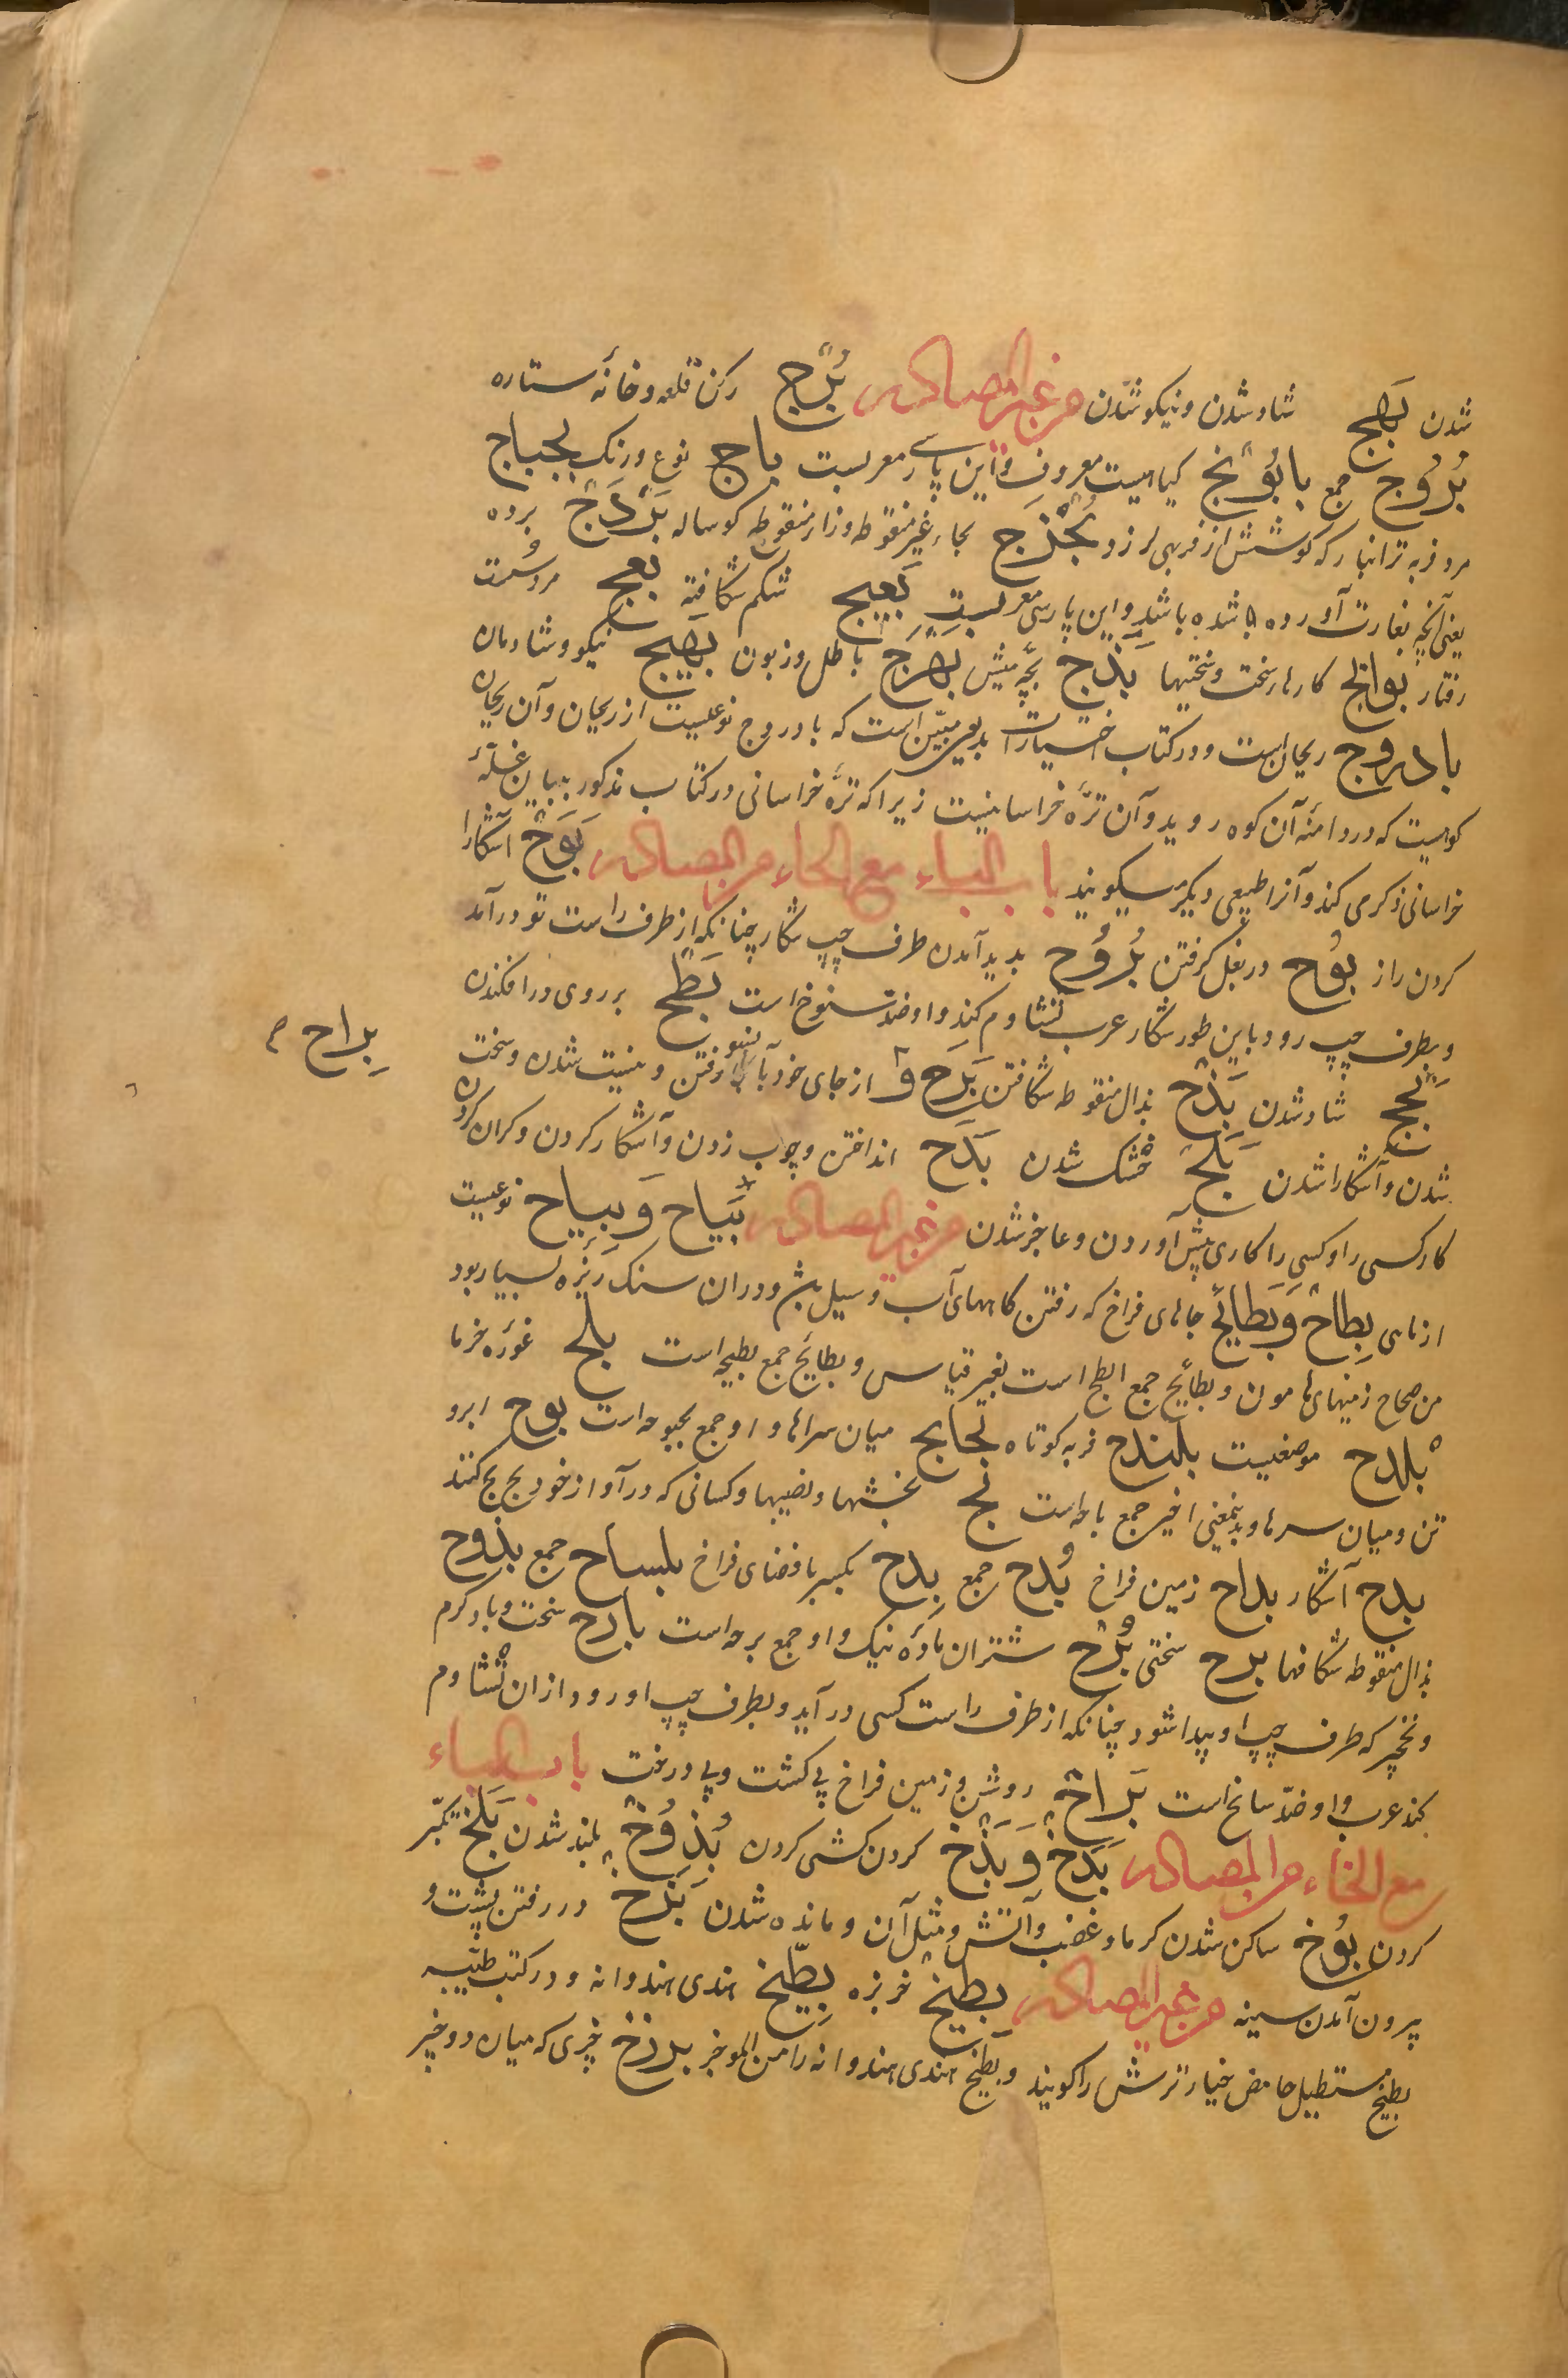 شدن بَهَج شاد شدن و نیکو شدن من غیر المصادر بُرْج رکن قلعه و خانهٔ ستاره
بُرُوج جمع بابُونَج گیاهیست معروف و این پارسی معربست باج نوع و رنگ بجباج
مرد فربه ترانبار که گوشتش از فربهی لرزد بُحْزَج بحاء غیر منقوطه و زاء منقوطه گوساله بَرْدَج برده
یعنی آنچه بغارت آورده باشد و این پارسی معربست بَعِیج شکم شکافته بعج مرد سست
رفتار بوائج کارهاء سخت و سختیها بَذَج بچهٔ میش بَهْرَج باطل و زبون بَهِیج نیکو و شادمان
بادروج ریحان است و در کتاب اختیارات بدیعی مبیّن است که بادروج نوعیست از ریحان و آن ریحان
کوهیست که در دامنهٔ آن کوه روید و آن ترّه خراسانیست زیرا که ترّه خراسانی در کتاب مذکور ببیان غلّهٔ
خراسانی ذکر می کند و آنرا طبیعی دیگر میگویند باب الباء مع الحاء من المصادر بَوْح آشکارا
کردن راز بوُح در بغل گرفتن بُرُوح بدید آمدن طرف چپ شکار چنانکه از طرف راست تو درآمد
و بطرف چپ رود باین طور شکار عرب تشاوم کند و او ضدّ سنوح است بَطْح بر روی درافکندن
بَجَح شاد شدن بَذْح بذال منقوطه شکافتن بَرَح و از جای خود بآنسو رفتن و نیست شدن و سخت
بِراح م
شدن و آشکارا شدن بَلَح خشک شدن بَدَح انداختن و چوب زدن و آشکار کردن و گران کردن
کار کسی را و کسی را کاری پیش آوردن و عاجز شدن من غیر المصادر بَیَاح وَ بِیاح نوعیست
از ماهی بِطاح وَ بَطائح جاهای فراخ که رفتن گاههای آب و سیل باشد و در آن سنک ریزه بسیار بود
من صحاح زمینهای هامون و بطائح جمع ابطح است بغیر قیاس و بطائح جمع بطیحه است بلح غورهٔ خرما
بلدح موضعیست بلندح فربه کوتاه بحابح میان سراها و او جمع بحبوحه است بوح ابرو
تن و میان سرها و بدینمعنی اخیر جمع باحه است بح بخشها و نصیبها و کسانی که در آواز خود بح بح کنند
بدح آشکار بداح زمین فراخ بُدح جمع بِدح بکسر با فضای فراخ بلساح جمع بذوح
بذال منقوطه شکافها برح سختی بُرْح شتران مادهٔ نیک و او جمع برحه است بارح سخت و باد گرم
و نخچیر که طرف چپ او پیدا شود چنانکه از طرف راست کسی درآید و بطرف چپ او رود از آن تشاوم
کند عرب و او ضدّ سانح است بَرَاح روشن و زمین فراخ بی کشت و بی درخت باب الباء
مع الخاء من المصادر بَدَخ وَ بَذَخ گردن کشی کردن بُذُوخ بلند شدن بَلَخ تکبّر
کردن بُوخ ساکن شدن گرما و غضب و آتش و مثل آن و مانده شدن بَزَخ در رفتن پشت و
بیرون آمدن سینه من غیر المصادر بطیخ خربزه بِطّیخ هندی هندوانه و در کتب طبّیه
بطیخ مستطیل حامض خیار ترش را گویند و بطیخ هندی هندوانه را من الموخر برزخ چیزی که میان دو چیز